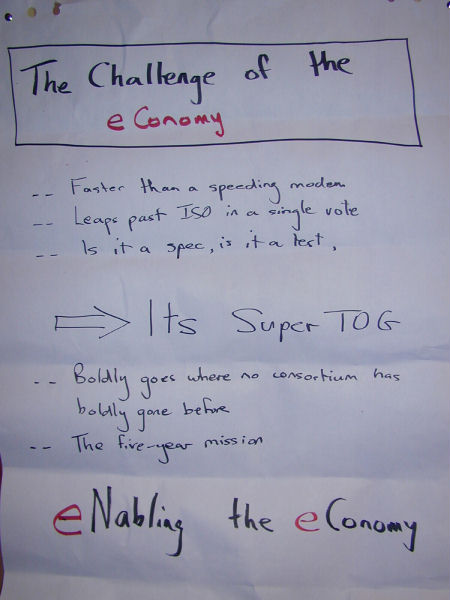 The Challenge of the
eConomy
-- Faster than a speeding modem
-- Leaps past ISO in a single vote
-- Is it a spec, is it a test,
⇒ Its Super TOG
-- Boldly goes where no consortium has
boldly gone before
-- The five-year mission
eNabling the eConomy